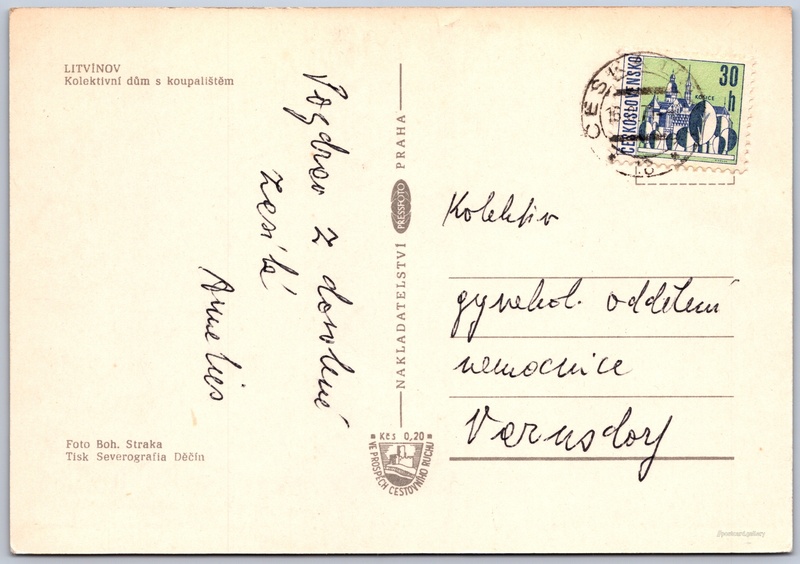 LITVÍNOV
Kolektivní dům s koupalištěm
Pozdrav z dovolené
zasílá
Annelies
Foto Boh. Straka
Tisk Severografia Děčín
NAKLADATELSTVÍ PRESSFOTO PRAHA
Kčs 0,20
VE PROSPĚCH CESTOVNÍHO RUCHU
ČESKOSLOVENSKO
30 h
KOŠICE
Kolektiv
gynekol. oddělení
nemocnice
Varnsdorf
@postcard.gallery